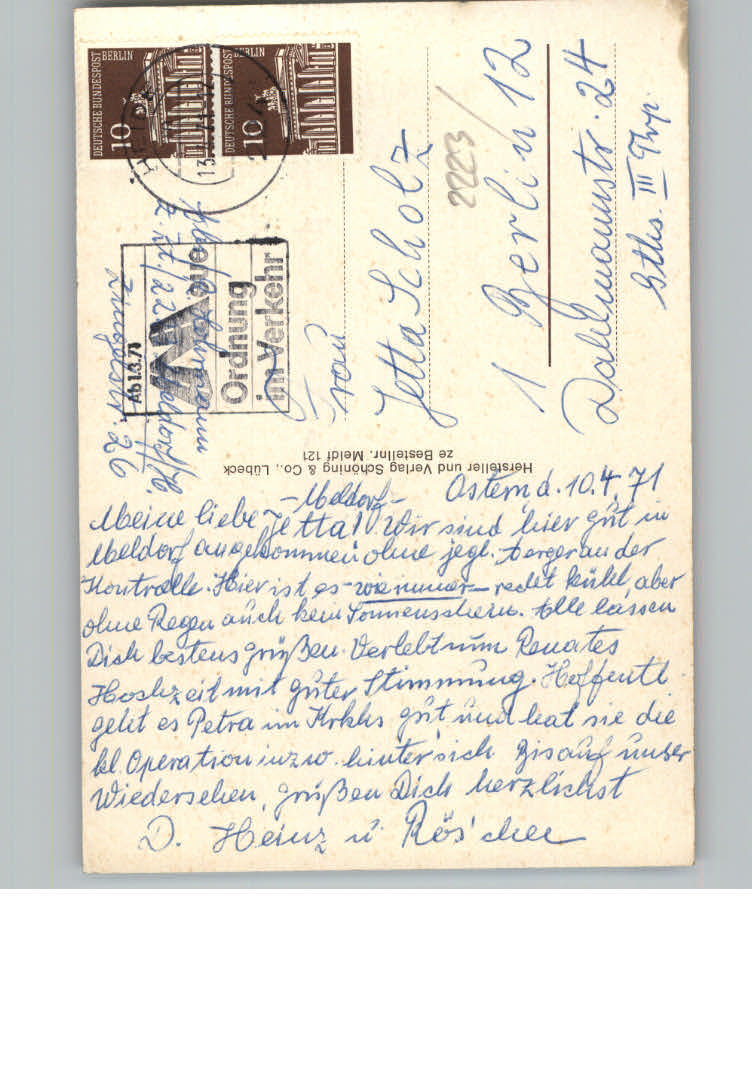 DEUTSCHE BUNDESPOST BERLIN
10
DEUTSCHE BUNDESPOST BERLIN
10
13.
Ab 1.3.71
Neue
Ordnung
im Verkehr
z. Zt. / 22 Meldorf/H.
Zingelstr. 26
Frau
Jetta Scholz
2223/
1 Berlin 12
Dahlmannstr. 24
Gths. III Trp.
Hersteller und Verlag Schöning & Co., Lübeck
ze Bestellnr. Meldf 121
- Meldorf - Ostern, d. 10.4.71
Meine liebe Jetta! Wir sind hier gut in
Meldorf angekommen ohne jegl. Aerger an der
Kontrolle. Hier ist es - wie immer - recht kühl, aber
ohne Regen auch kein Sonnenschein. Alle lassen
Dich bestens grüßen. Verlebt nun Renates
Hochzeit mit guter Stimmung. Hoffentl
geht es Petra im Krkhs gut und hat sie die
kl. Operation inzw. hinter sich Bis auf unser
Wiedersehen, grüßen Dich herzlichst
D. Heinz u. Rös'chen